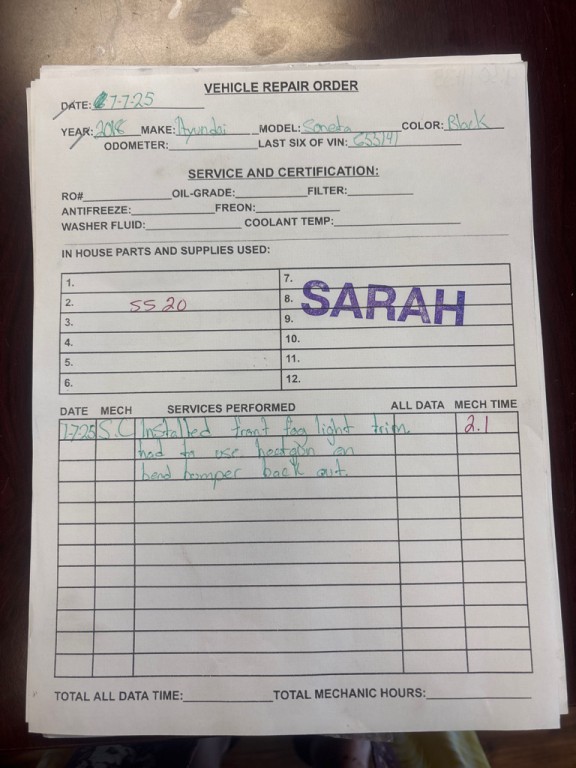 VEHICLE REPAIR ORDER
DATE: 7-7-25
YEAR: 2018 MAKE: Hyundai MODEL: Soneta COLOR: Black
ODOMETER: LAST SIX OF VIN: 655141
SERVICE AND CERTIFICATION:
RO# OIL-GRADE: FILTER:
ANTIFREEZE: FREON:
WASHER FLUID: COOLANT TEMP:
IN HOUSE PARTS AND SUPPLIES USED:
1. 7.
2. SS 20 8. SARAH
3. 9.
4. 10.
5. 11.
6. 12.
DATE MECH SERVICES PERFORMED ALL DATA MECH TIME
7-7-25 S.C Installed front fog light trim 2.1
had to use heatgun on
bend bomper back out.
TOTAL ALL DATA TIME: TOTAL MECHANIC HOURS: